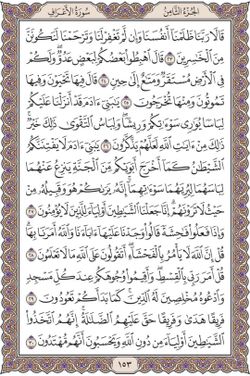 الجزء الثامن سورة الأعراف
قَالَا رَبَّنَا ظَلَمْنَا أَنفُسَنَا وَإِن لَّمْ تَغْفِرْ لَنَا وَتَرْحَمْنَا لَنَكُونَنَّ
مِنَ الْخَاسِرِينَ ٢٣ قَالَ اهْبِطُوا بَعْضُكُمْ لِبَعْضٍ عَدُوٌّ وَلَكُمْ
فِي الْأَرْضِ مُسْتَقَرٌّ وَمَتَاعٌ إِلَىٰ حِينٍ ٢٤ قَالَ فِيهَا تَحْيَوْنَ وَفِيهَا
تَمُوتُونَ وَمِنْهَا تُخْرَجُونَ ٢٥ يَا بَنِي آدَمَ قَدْ أَنزَلْنَا عَلَيْكُمْ
لِبَاسًا يُوَارِي سَوْآتِكُمْ وَرِيشًا وَلِبَاسُ التَّقْوَىٰ ذَٰلِكَ خَيْرٌ
ذَٰلِكَ مِنْ آيَاتِ اللَّهِ لَعَلَّهُمْ يَذَّكَّرُونَ ٢٦ يَا بَنِي آدَمَ لَا يَفْتِنَنَّكُمُ
الشَّيْطَانُ كَمَا أَخْرَجَ أَبَوَيْكُم مِّنَ الْجَنَّةِ يَنزِعُ عَنْهُمَا
لِبَاسَهُمَا لِيُرِيَهُمَا سَوْآتِهِمَا إِنَّهُ يَرَاكُمْ هُوَ وَقَبِيلُهُ مِنْ
حَيْثُ لَا تَرَوْنَهُمْ إِنَّا جَعَلْنَا الشَّيَاطِينَ أَوْلِيَاءَ لِلَّذِينَ لَا يُؤْمِنُونَ ٢٧
وَإِذَا فَعَلُوا فَاحِشَةً قَالُوا وَجَدْنَا عَلَيْهَا آبَاءَنَا وَاللَّهُ أَمَرَنَا بِهَا
قُلْ إِنَّ اللَّهَ لَا يَأْمُرُ بِالْفَحْشَاءِ أَتَقُولُونَ عَلَى اللَّهِ مَا لَا تَعْلَمُونَ ٢٨
قُلْ أَمَرَ رَبِّي بِالْقِسْطِ وَأَقِيمُوا وُجُوهَكُمْ عِندَ كُلِّ مَسْجِدٍ
وَادْعُوهُ مُخْلِصِينَ لَهُ الدِّينَ كَمَا بَدَأَكُمْ تَعُودُونَ ٢٩
فَرِيقًا هَدَىٰ وَفَرِيقًا حَقَّ عَلَيْهِمُ الضَّلَالَةُ إِنَّهُمُ اتَّخَذُوا
الشَّيَاطِينَ أَوْلِيَاءَ مِن دُونِ اللَّهِ وَيَحْسَبُونَ أَنَّهُم مُّهْتَدُونَ ٣٠
١٥٣